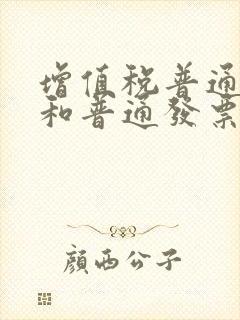 增值税普通
和普通發票
顏西公子